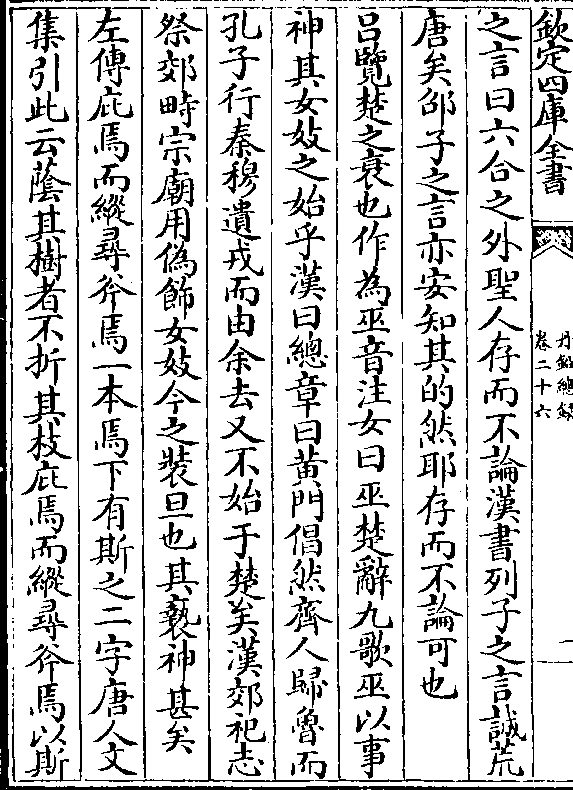 欽定四庫全書
丹鉛總録
卷二十六
一
之言曰六合之外聖人存而不論漢書列子之言誠荒
唐矣邵子之言亦安知其的然耶存而不論可也
吕覽楚之衰也作為巫音注女曰巫楚辭九歌巫以事
神其女妓之始乎漢曰總章曰黄門倡然齊人歸魯而
孔子行秦穆遺戎而由余去又不始于楚矣漢郊祀志
祭郊畤宗廟用偽飾女妓今之裝旦也其褻神甚矣
左傳庇焉而縱尋斧焉一本焉下有斯之二字唐人文
集引此云蔭其樹者不折其枝庇焉而縱尋斧焉以斯